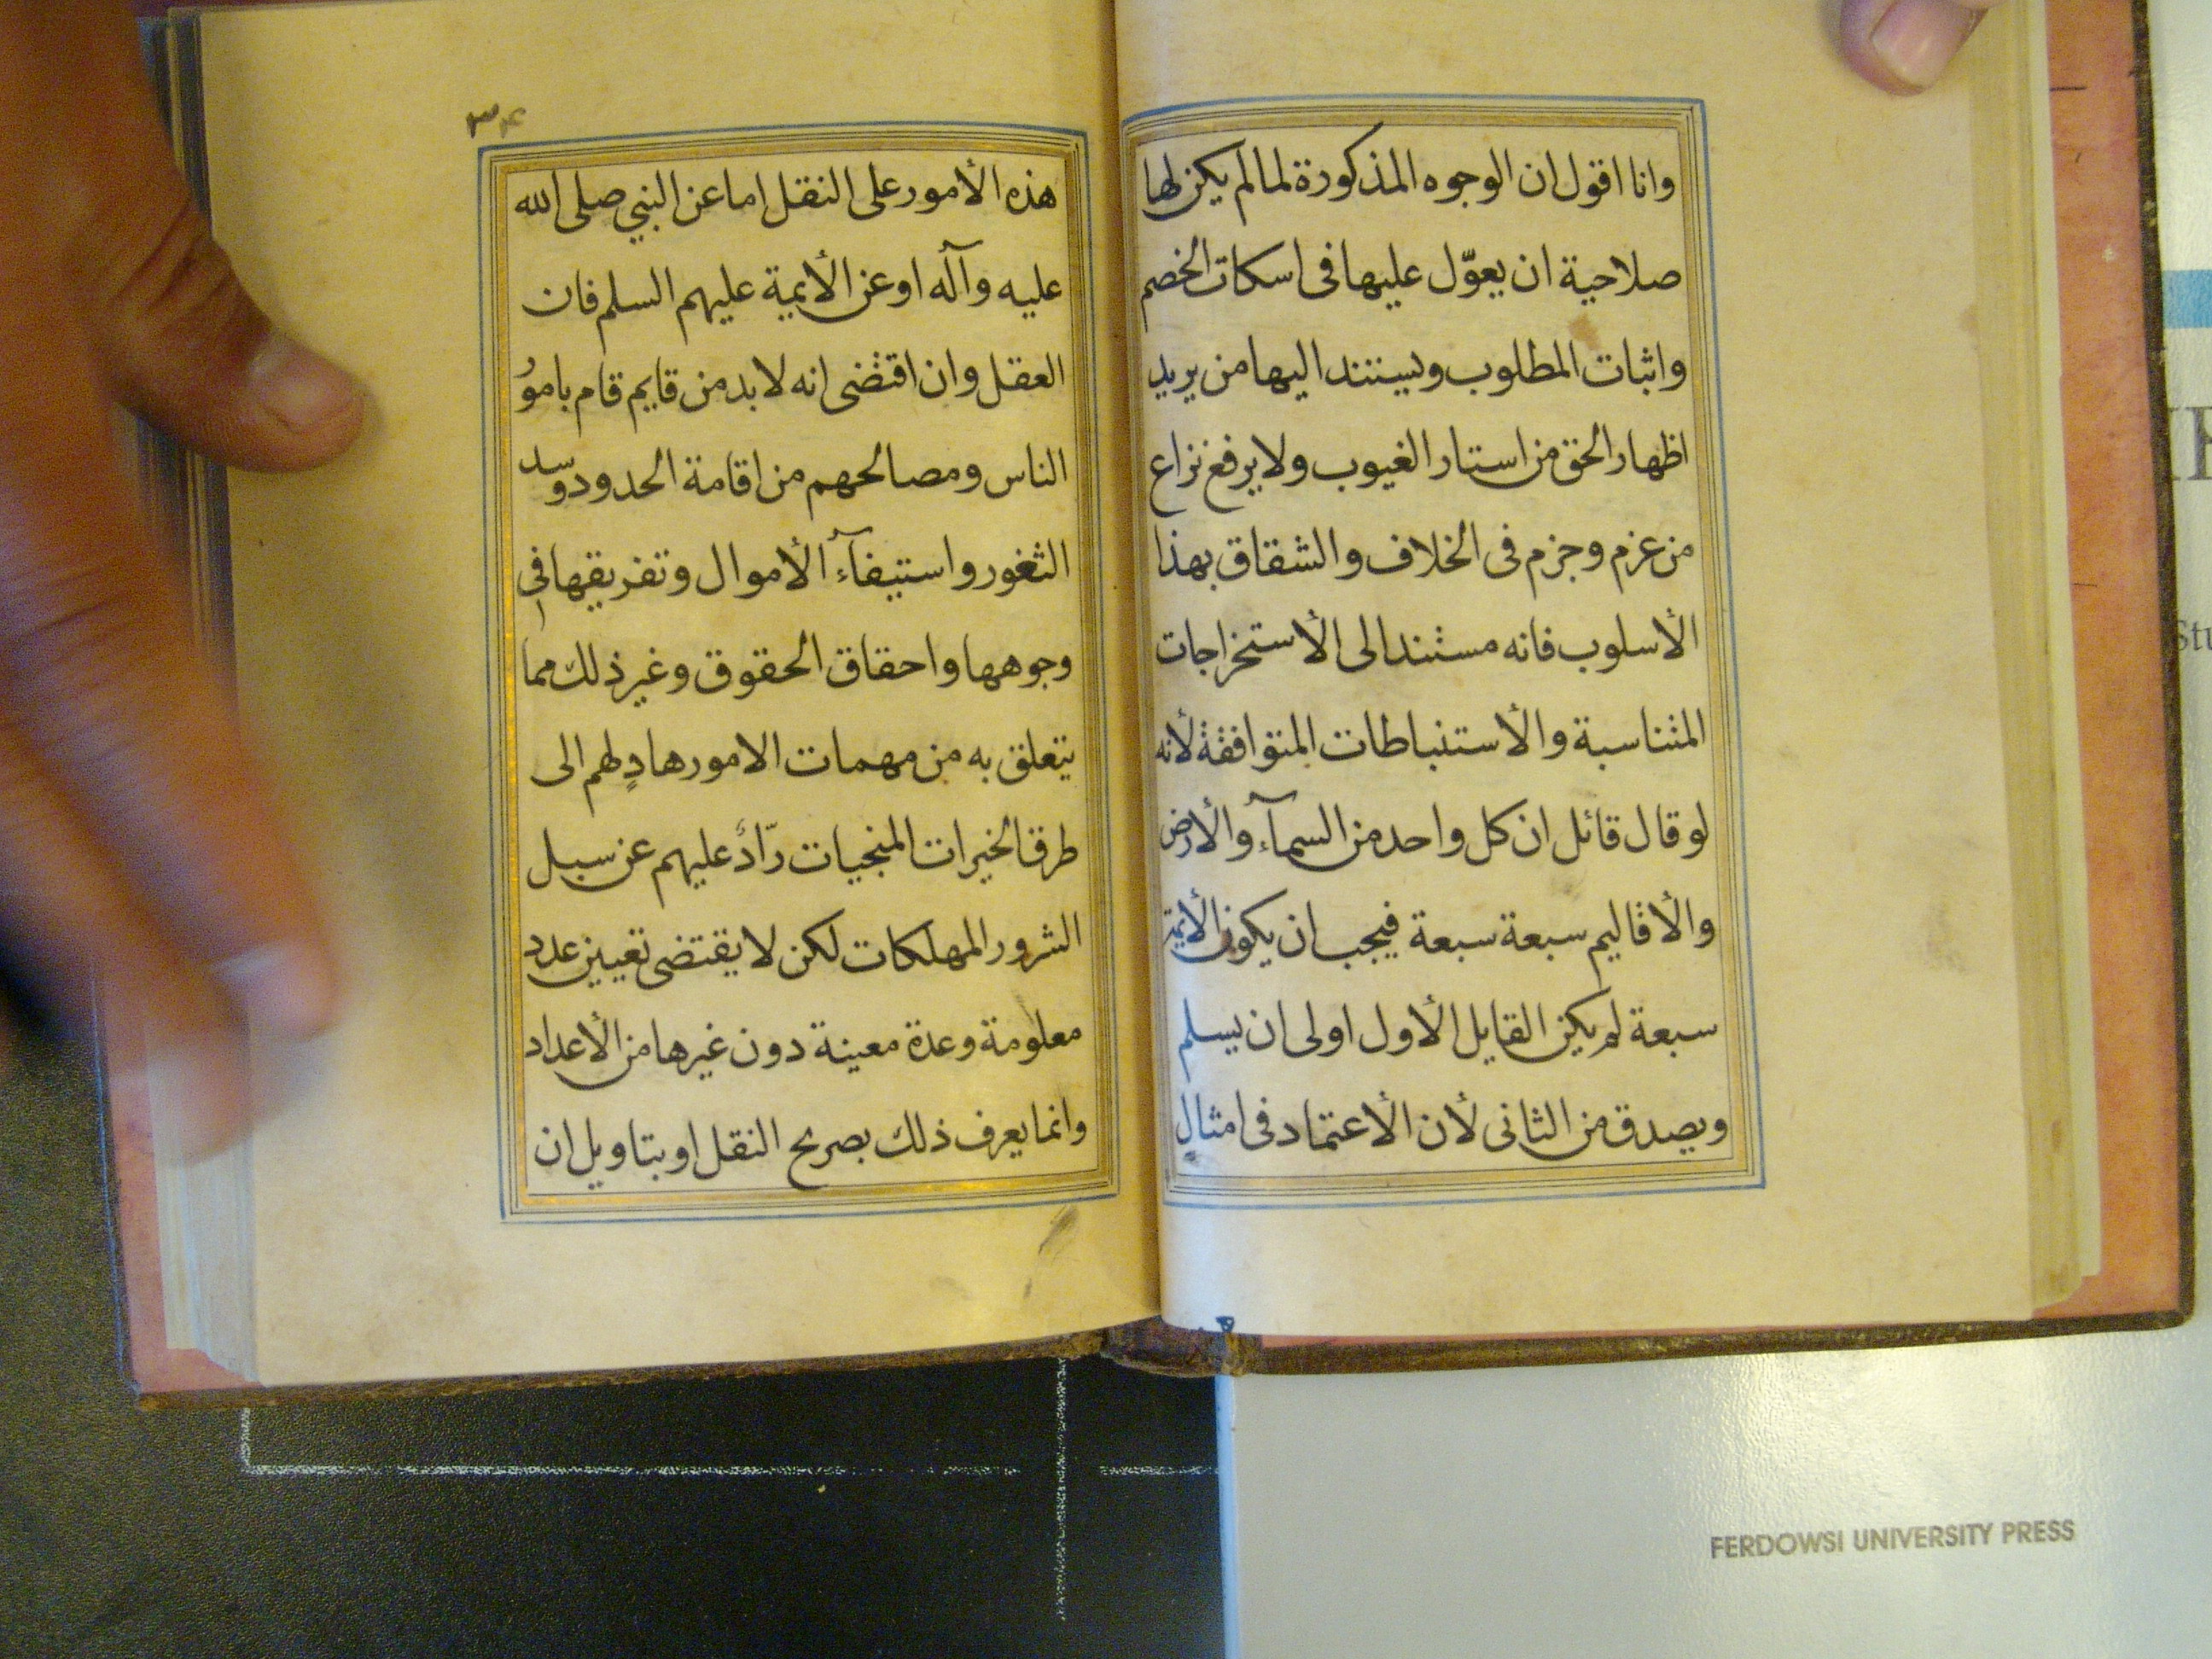 وانا اقول ان الوجوه المذكورة لما لم يكن لها
صلاحية ان يعوّل عليها فى اسكات الخصم
واثبات المطلوب ويستند اليها من يريد
اظهار الحق من استار الغيوب ولا يرفع نزاع
من عزم وجزم فى الخلاف والشقاق بهذا
الأسلوب فانه مستند الى الأستخراجات
المتناسبة والأستنباطات المتوافقة لأنه
لو قال قائل ان كل واحد من السمآء والارض
والأقاليم سبعة سبعة فيجب ان يكون الأيمة
سبعة لم يكن القايل الأول اولى ان يسلم
ويصدق من الثانى لأن الأعتماد فى امثال
٣٤
هذه الأمور على النقل اما عن النبي صلى الله
عليه وآله او عن الأيمية عليهم السلم فان
العقل وان اقتضى انه لا بد من قايم قام بامور
الناس ومصالحهم من اقامة الحدود وسد
الثغور واستيفآء الأموال وتفريقها في
وجوهها واحقاق الحقوق وغير ذلك مما
يتعلق به من مهمات الامور هادٍ لهم الى
طرق الخيرات المنجيات رّادٌ عليهم عن سبل
الشرور المهلكات لكن لا يقتضى تعيين عدد
معلومة وعدة معينة دون غيرها من الأعداد
وانما يعرف ذلك بصريح النقل او بتاويل ان
FERDOWSI UNIVERSITY PRESS